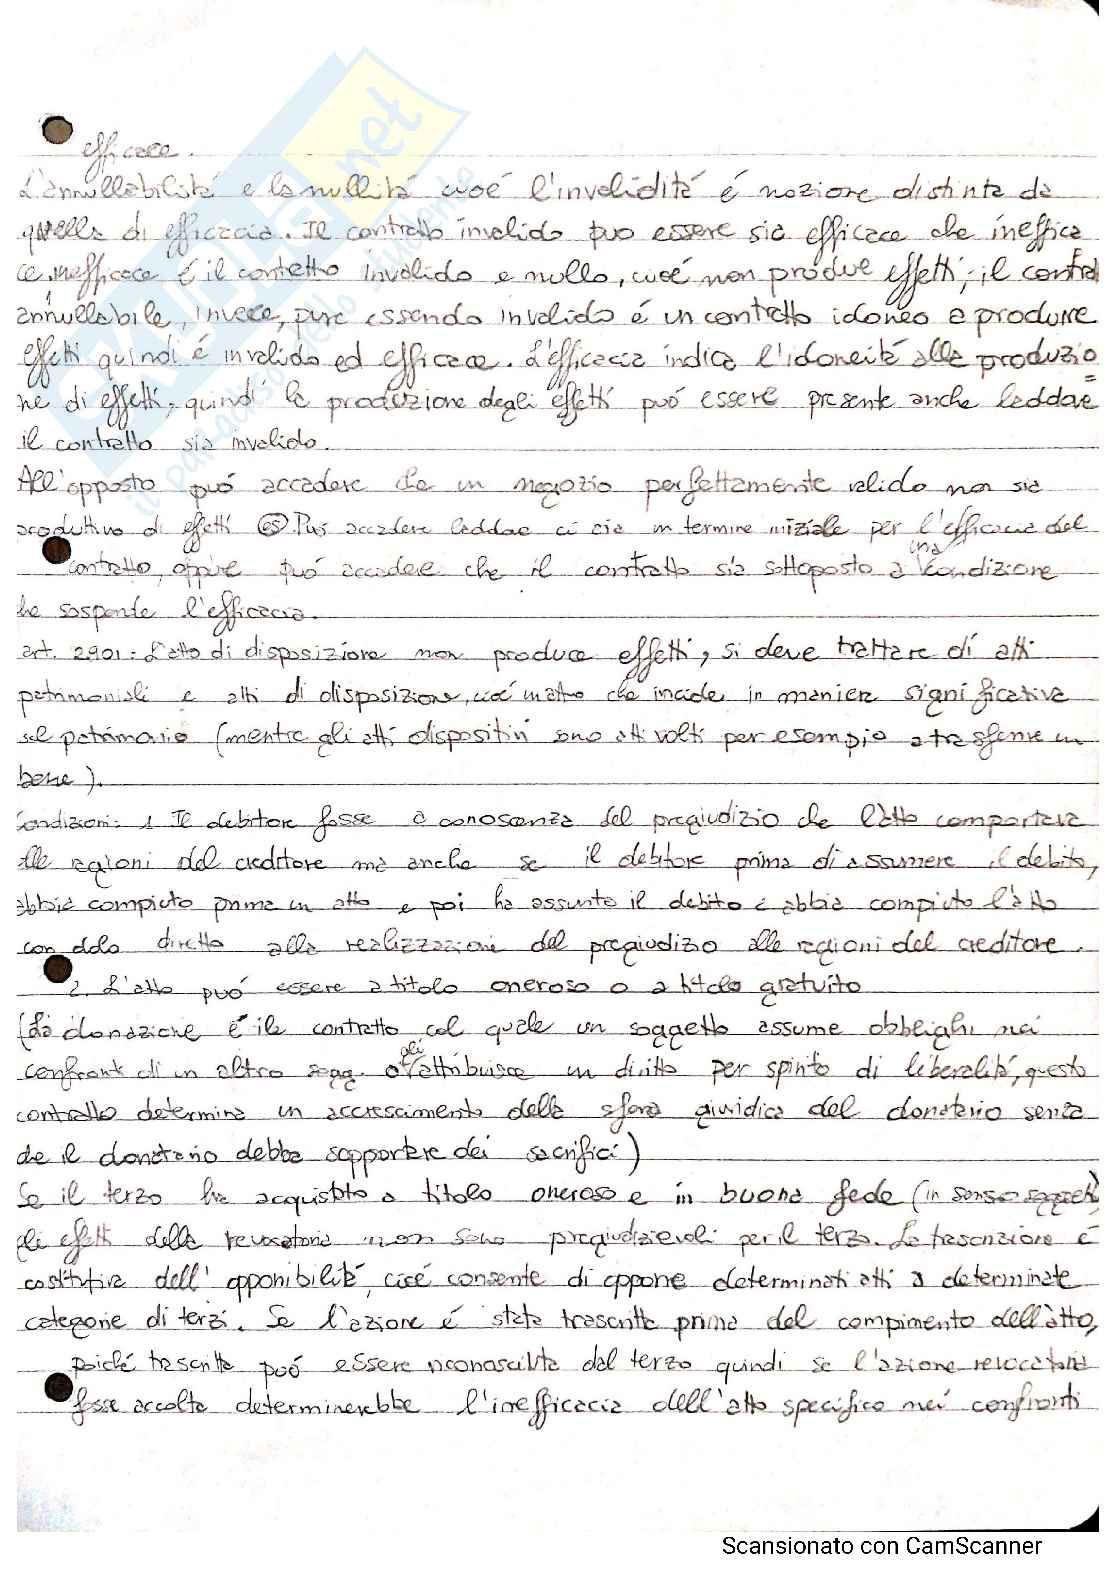 efficace.
L'annullabilitá e la nullitá cioé l'invaliditá é nozione distinta da
quella di efficacia. Il contratto invalido puo essere sia efficace che ineffica
ce. inefficace é il contratto invalido e nullo, cioé non produce effetti; il contrat
annullabile, invece, pur essendo invalido é un contratto idoneo a produrre
effetti quindi é invalido ed efficace. L'efficacia indica l'idoneitá alla produzio
ne di effetti, quindi la produzione degli effetti puó essere presente anche laddove
il contratto sia invalido.
All'opposto puó accadere che un negozio perfettamente valido non sia
produttivo di effetti (es). Puó accadere laddove ci sia un termine iniziale per l'efficacia del
contratto, oppure puó accadere che il contratto sia sottoposto a una condizione
che sospende l'efficacia.
art. 2901: L'atto di disposizione non produce effetti, si deve trattare di atti
patrimoniali e atti di disposizione, cioé un atto che incide in maniera significativa
sul patrimonio (mentre gli atti dispositivi sono atti volti per esempio a trasferire un
bene).
Condizioni: 1 Il debitore fosse a conoscenza del pregiudizio che l'atto comportava
alle ragioni del creditore ma anche se il debitore prima di assumere il debito,
abbia compiuto prima un atto e poi ha assunto il debito e abbia compiuto l'atto
con dolo diretto alla realizzazione del pregiudizio alle ragioni del creditore.
2. L'atto puó essere a titolo oneroso o a titolo gratuito
(La donazione é il contratto col quale un soggetto assume obblighi nei
confronti di un altro sogg. o gli attribuisce un diritto per spirito di liberalitá, questo
contratto determina un accrescimento della sfera giuridica del donatario senza
che il donatario debba sopportare dei sacrifici)
Se il terzo ha acquistato a titolo oneroso e in buona fede (in senso soggett)
gli effetti della revocatoria non sono pregiudizievoli per il terzo. La trascrizione é
costitutiva dell'opponibilitá, cioé consente di opporre determinati atti a determinate
categorie di terzi. Se l'azione é stata trascritta prima del compimento dell'atto,
poiché trascritta puó essere riconoscibile dal terzo quindi se l'azione revocatoria
fosse accolta determinerebbe l'inefficacia dell'atto specifico nei confronti
Scansionato con CamScanner